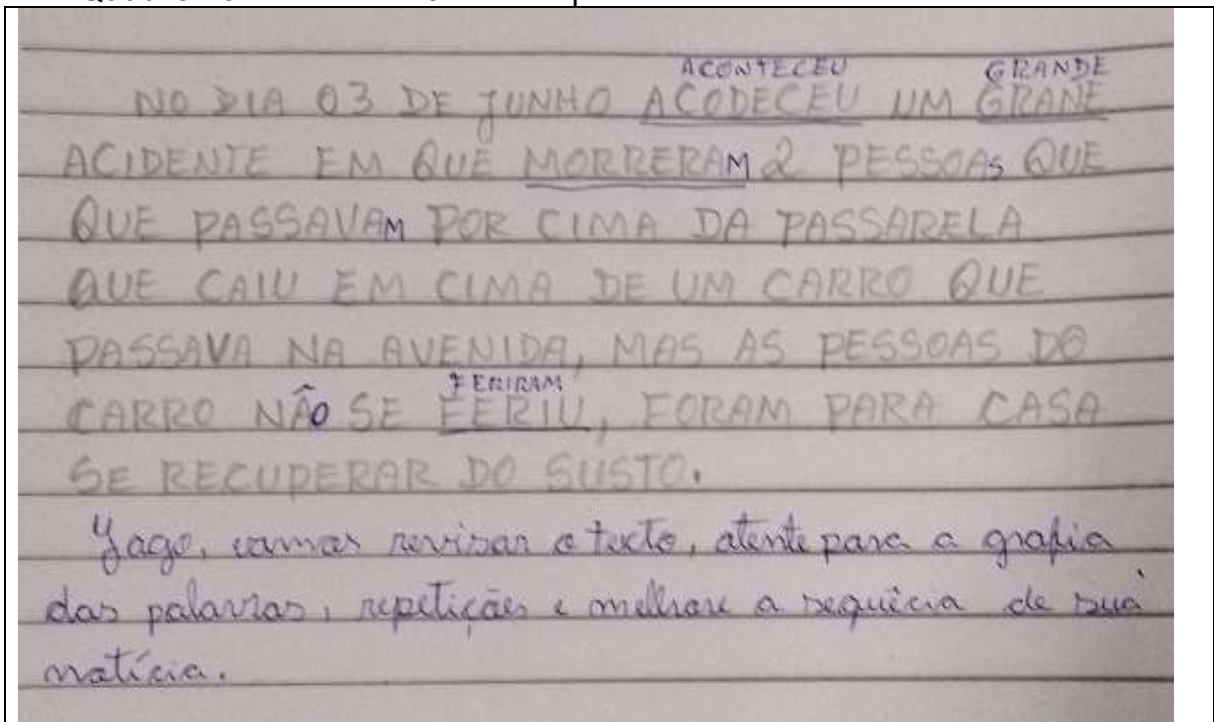 ACONTECEU GRANDE
NO DIA 03 DE JUNHO ACODECEU UM GRANE
ACIDENTE EM QUE MORRERAM 2 PESSOAS QUE
QUE PASSAVAM POR CIMA DA PASSARELA
QUE CAIU EM CIMA DE UM CARRO QUE
PASSAVA NA AVENIDA, MAS AS PESSOAS DO
FERIRAM
CARRO NÃO SE FERIU, FORAM PARA CASA
SE RECUPERAR DO SUSTO.
Yago, vamos revisar o texto, atente para a grafia
das palavras, repetições e melhore a sequêcia de sua
notícia.